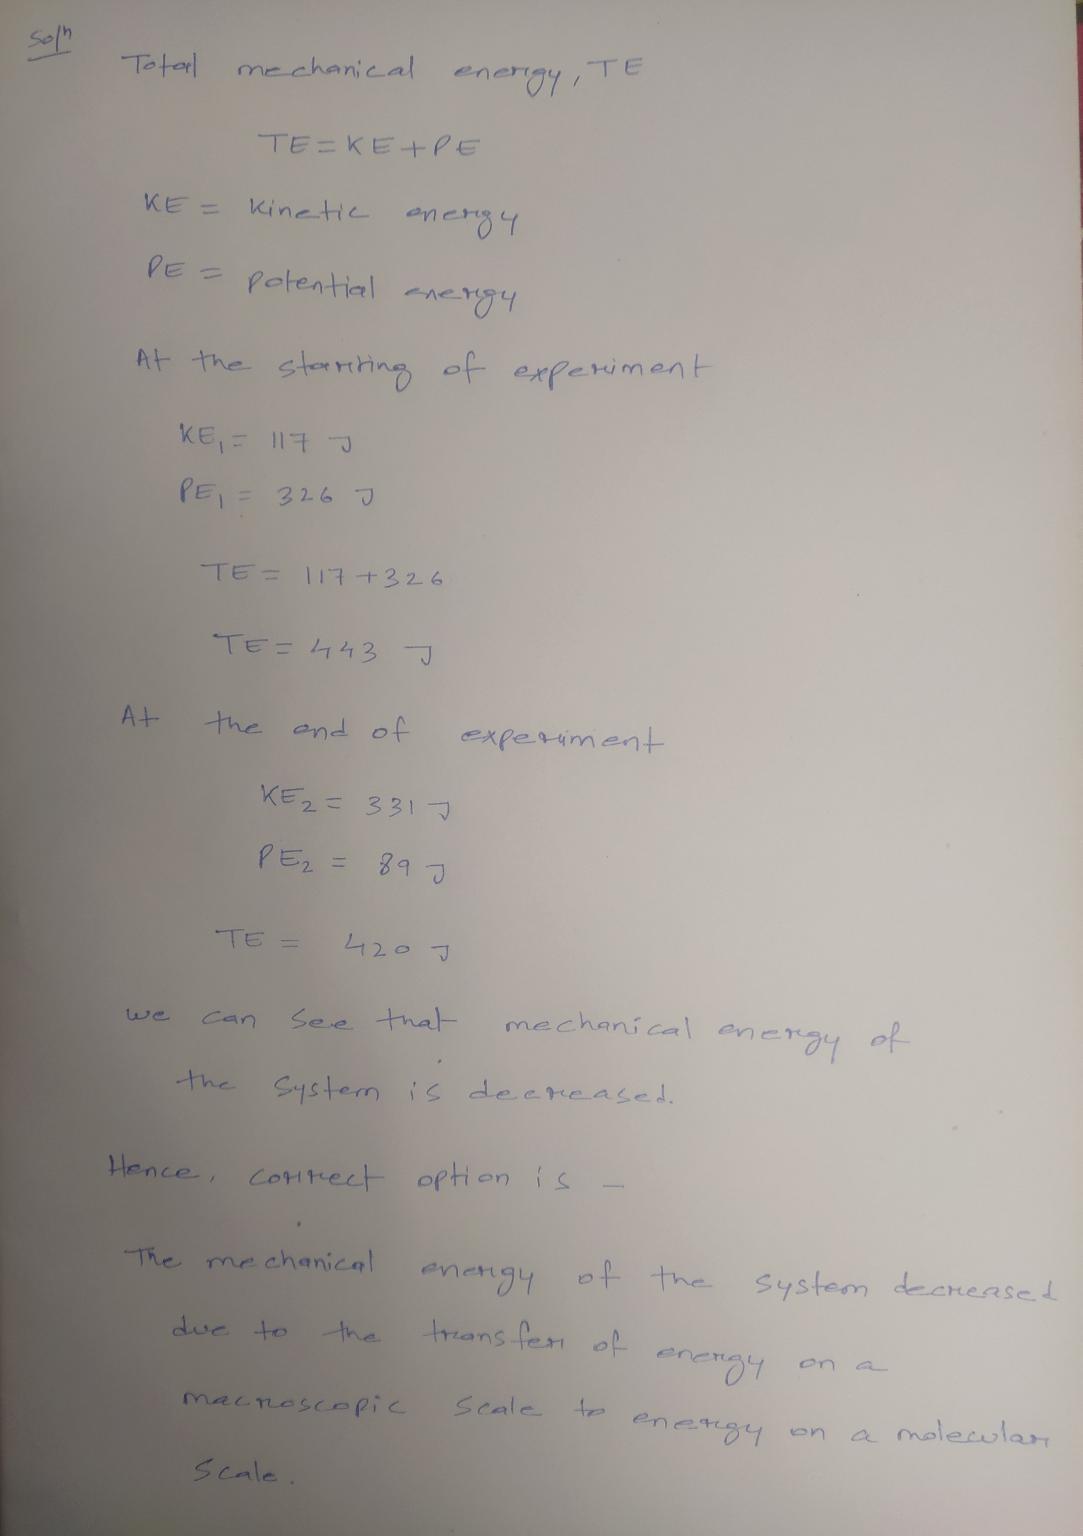 Solⁿ
Total mechanical energy, TE
TE = KE + PE
KE = Kinetic energy
PE = potential energy
At the starting of experiment
KE₁ = 117 J
PE₁ = 326 J
TE = 117 + 326
TE = 443 J
At the end of experiment
KE₂ = 331 J
PE₂ = 89 J
TE = 420 J
we can see that mechanical energy of
the system is decreased.
Hence, correct option is –
The mechanical energy of the system decreased
due to the transfer of energy on a
macroscopic scale to energy on a molecular
scale.